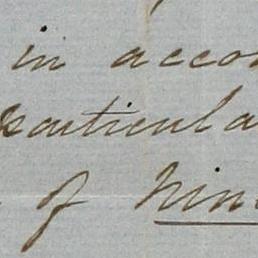 in acco
particula
of Nin